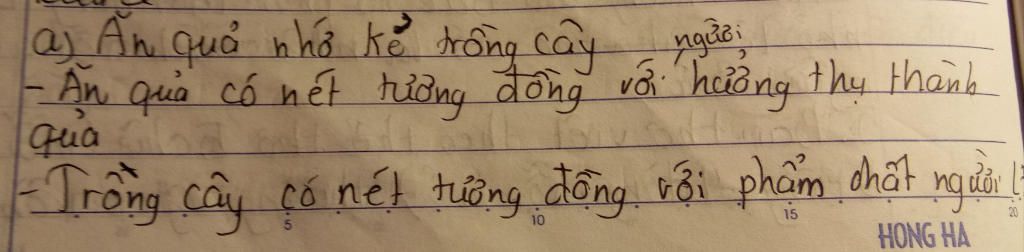 a) Ăn quả nhớ kẻ trồng cây
người
- Ăn quả có nét tương đồng với hưởng thụ thành
quả
- Trồng cây có nét tương đồng với phẩm chất người
5 10 15 20
HONG HA